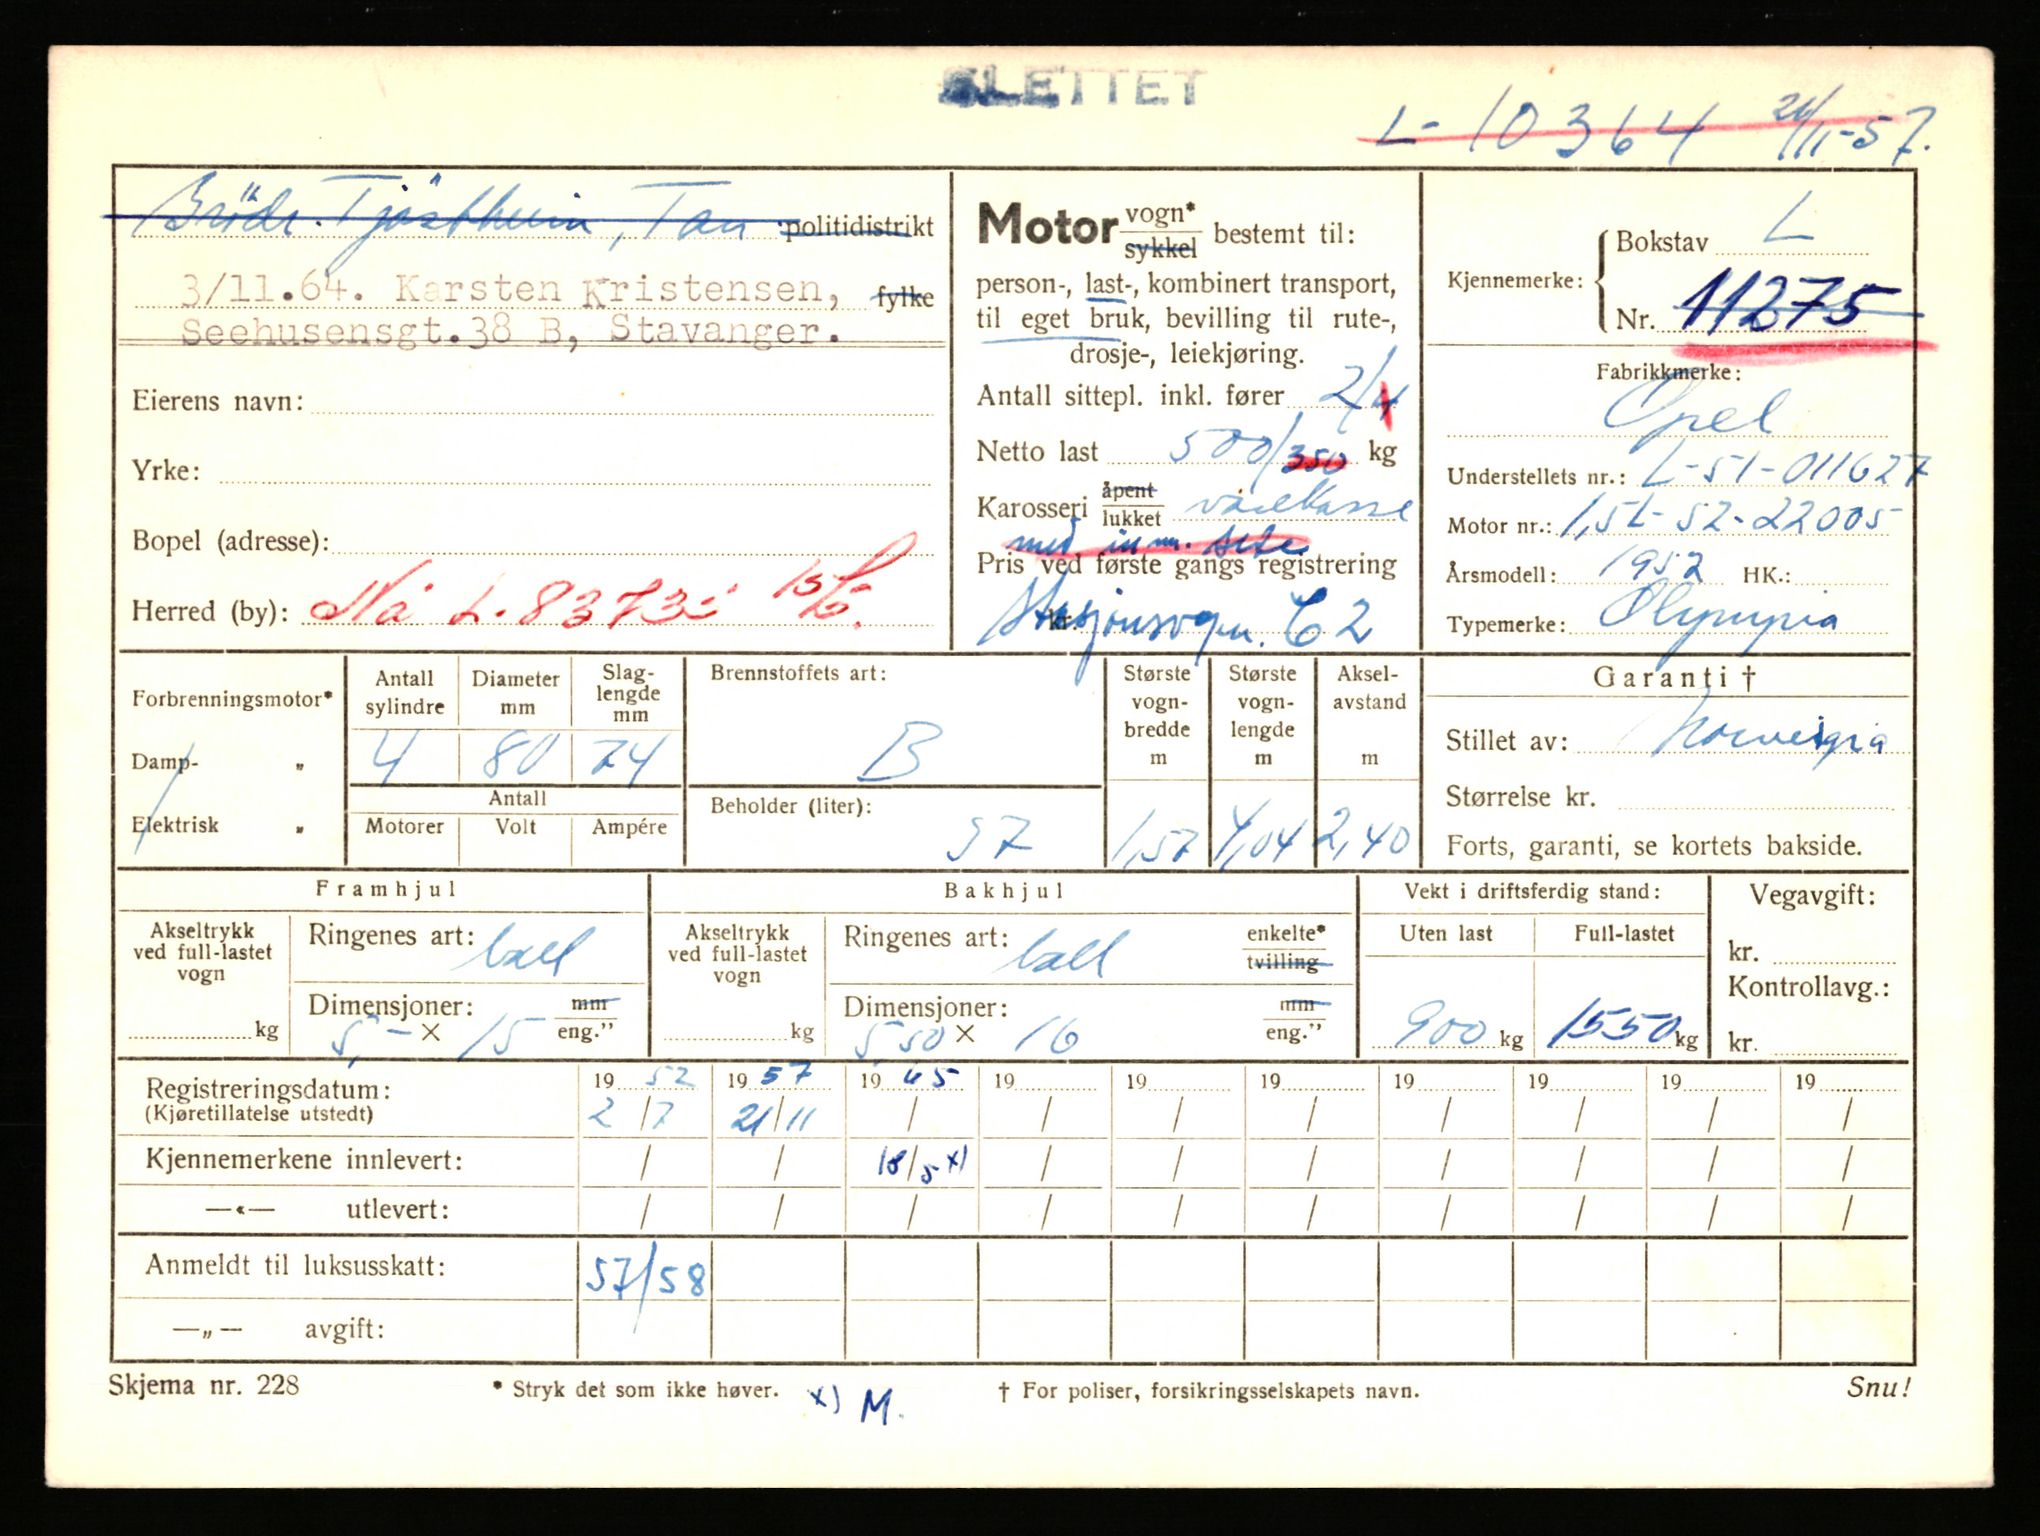 SLETTET
L-10364 21/11-57.
Brødr. Tjøstheim, Tau politidistrikt
3/11.64. Karsten Kristensen, fylke
Seehusensgt.38 B, Stavanger.
Eierens navn:
Yrke:
Bopel (adresse):
Herred (by): Nå L-83735
Motor vogn* sykkel bestemt til:
person-, last-, kombinert transport,
til eget bruk, bevilling til rute-,
drosje-, leiekjøring.
Antall sittepl. inkl. fører 2/4
Netto last 500/350 kg
Karosseri åpent lukket varekasse
med inn. sete
Pris ved første gangs registrering
kr. Stasjonsvogn. C2
Kjennemerke: Bokstav L
Nr. 11275
Fabrikkmerke:
Opel
Understellets nr.: L-51-011627
Motor nr.: 1,5L-52-22005
Årsmodell: 1952 HK.:
Typemerke: Olympia
Forbrenningsmotor*
Damp- „
Elektrisk „
Antall sylindre 4
Diameter mm 80
Slag-lengde mm 74
Antall
Motorer Volt Ampére
Brennstoffets art:
B
Beholder (liter):
37
Største vogn-bredde m 1,57
Største vogn-lengde m 4,04
Aksel-avstand m 2,40
Garanti †
Stillet av: Norvegia
Størrelse kr.
Forts, garanti, se kortets bakside.
Framhjul
Akseltrykk ved full-lastet vogn kg
Ringenes art: luft
Dimensjoner: 5,- x 15 mm eng."
Bakhjul
Akseltrykk ved full-lastet vogn kg
Ringenes art: luft enkelte* tvilling
Dimensjoner: 5,50 x 16 mm eng."
Vekt i driftsferdig stand:
Uten last Full-lastet
900 kg 1550 kg
Vegavgift:
kr.
Kontrollavg.:
kr.
Registreringsdatum: 19 52 19 57 19 65 19 19 19 19 19 19 19
(Kjøretillatelse utstedt) 2/7 21/11 / / / / / / / /
Kjennemerkene innlevert: / / 18/5 x) / / / / / / /
—«— utlevert: / / / / / / / / / /
Anmeldt til luksusskatt: 57/58
—„— avgift:
Skjema nr. 228 * Stryk det som ikke høver. x) M. † For poliser, forsikringsselskapets navn. Snu!